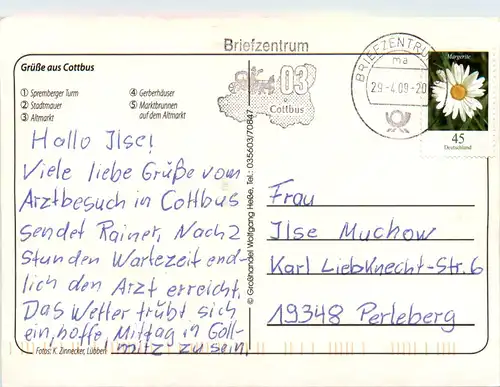 Briefzentrum
Grüße aus Cottbus
① Spremberger Turm
② Stadtmauer
③ Altmarkt
④ Gerberhäuser
⑤ Marktbrunnen
auf dem Altmarkt
03
Cottbus
BRIEFZENTRUM
ma
29.-4.09-20
Margerite
45
Deutschland
Hallo Ilse!
Viele liebe Grüße vom
Arztbesuch in Cottbus
sendet Rainer. Nach 2
Stunden Wartezeit end-
lich den Arzt erreicht.
Das Wetter trübt sich
ein, hoffe Mittag in Goll-
mitz zu sein.
Fotos: K. Zinnecker, Lübben
© Großhandel Wolfgang Heße, Tel.: 035603/70847
Frau
Ilse Muchow
Karl Liebknecht-Str. 6
19348 Perleberg